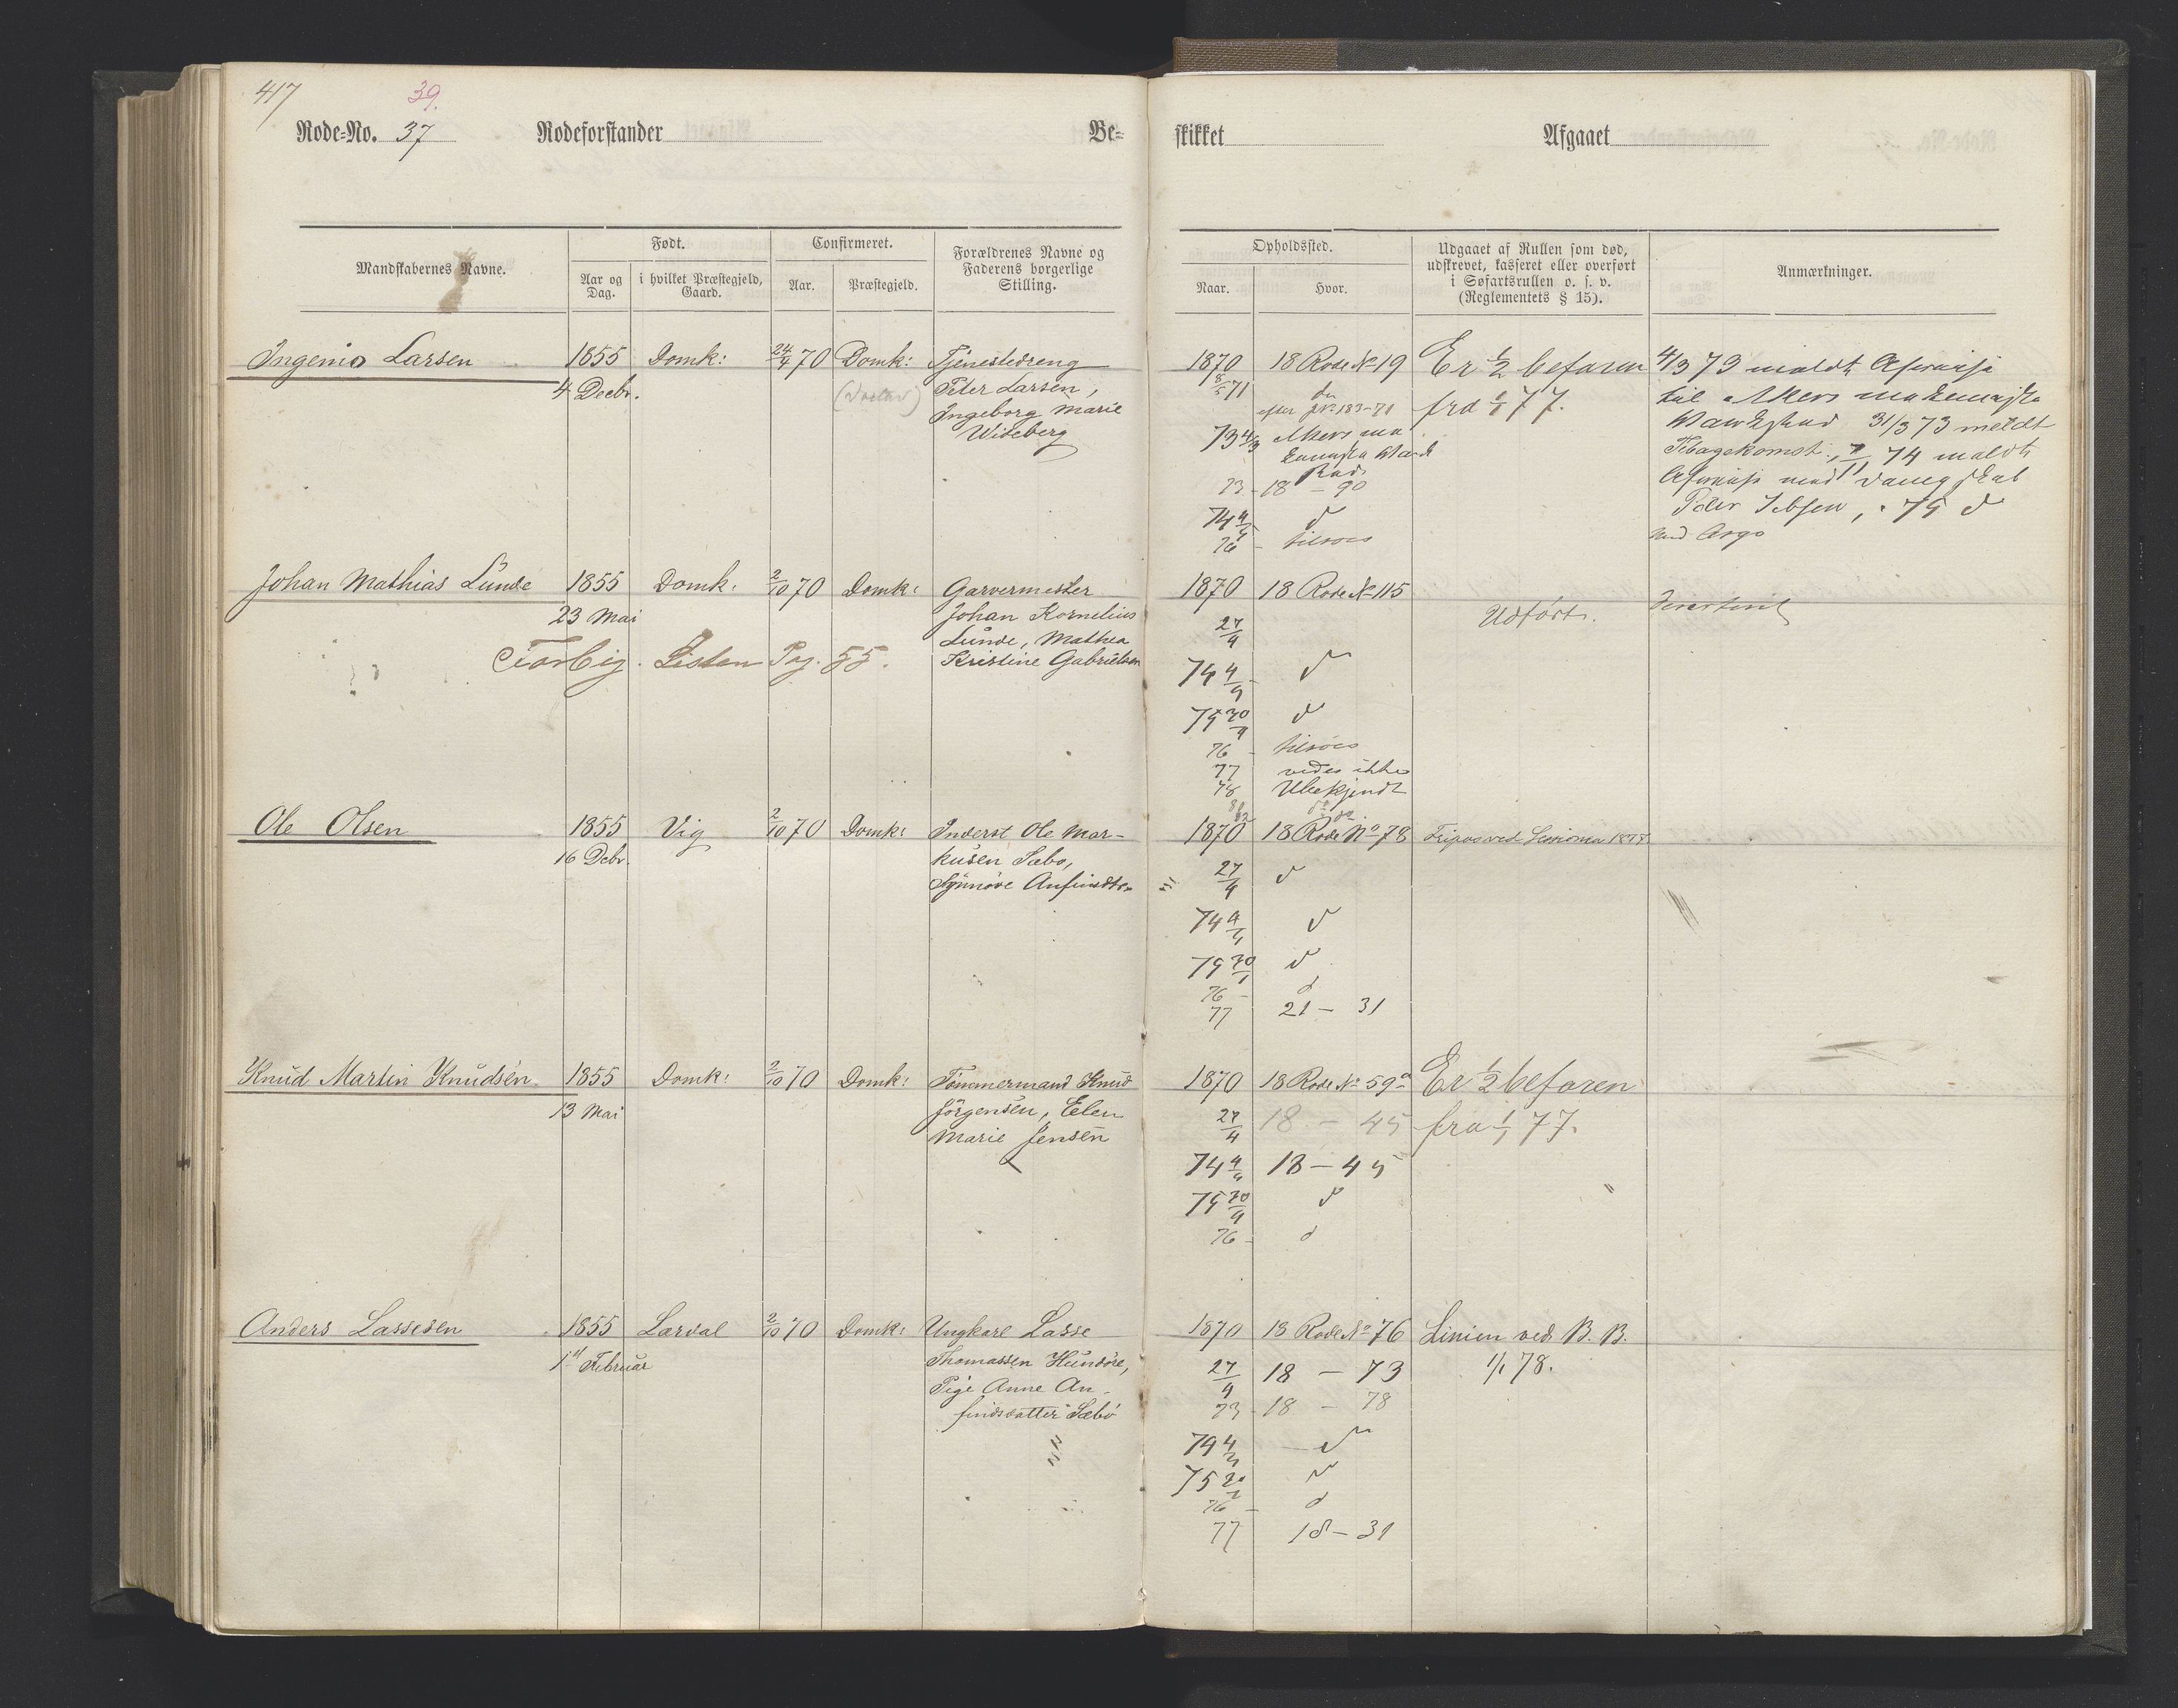 417
39.
Rode=No. 37 Rodeforstander Be=
skikket Afgaaet
Mandskabernes Navne.
Født.
Aar og Dag.
i hvilket Præstegjeld, Gaard.
Confirmeret.
Aar.
Præstegjeld.
Forældrenes Navne og
Faderens borgerlige
Stilling.
Opholdssted.
Naar.
Hvor.
Udgaaet af Rullen som død,
udskrevet, kasseret eller overført
i Søfartsrullen o. s. v.
(Reglementets § 15).
Anmærkninger.
Ingenio Larsen 1855 Domk: 24/4 70 Domk: Tjenestedreng
4 Decbr. Peter Larsen,
Ingeborg Marie
Wideberg
1870 18 Rode No 19
8/5 71 do
efter No 183-71
73 4/3 Akers
73 - 18 - 90
74 4/4 d
76 - tilsøes
Er 1/2 befaren
fra 1/1 77.
4/3 73 meldt Afreise
til Akers mekaniske
31/3 73 meldt
Tilbagekomst., 7/11 74 meldt
Afreise med
Peder Ibsen, 75 d
med Argo
Johan Mathias Lunde 1855 Domk: 2/10 70 Domk: Garvermester
23 Mai Johan Kornelius
Lunde, Mathea
Forbig. Listen Pag. 55. Kristine Gabrielsen
1870 18 Rode No 115
27/4
74 4/4 - d
75 20/4 d
76 - tilsøes
77 vides ikke
78 Ubekjendt
81 do
82 do
Udført.
Ole Olsen 1855 Vig 2/10 70 Domk: Inderst Ole Mar-
16 Debr. kusen Sæbo,
Synnøve Anfindtsr
1870 18 Rode No 78
27/4 d
74 4/4 d
75 20/4 d
76 - d
77 21 - 31
Fripas ved Sessionen 1877.
Knud Martin Knudsen. 1855 Domk: 2/10 70 Domk: Tømmermand Knud
13 Mai Jörgensen, Elen
Marie Jensen
1870 18 Rode No 59a
27/4 18 - 45
74 4/4 18 - 45
75 20/4 d
76 - d
Er 1/2 befaren
fra 1/1 77.
Anders Lassesen 1855 Lardal 2/10 70 Domk: Ungkarl Lasse
1st Februar Thomassen Hundöre,
Pige Anne An-
findsdatter Sæbö
1870 18 Rode No 76
27/4 18 - 73
73 - 18 - 78
74 4/4 - d
75 20/4 d
76 - d
77 18 - 31
Linien ved B. B.
1/1 78.